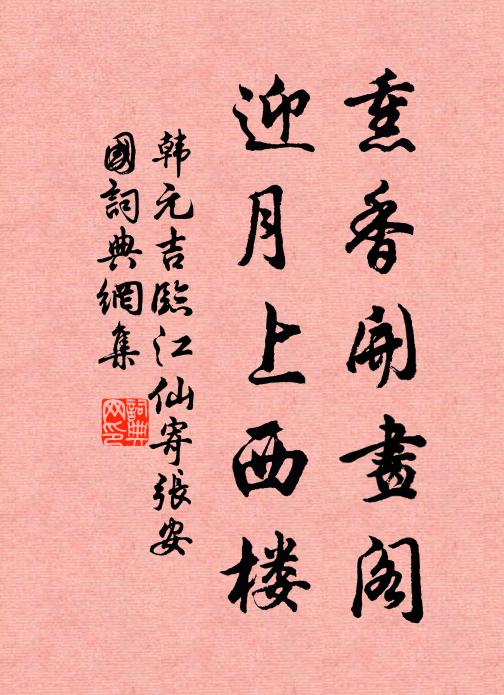 熏香開畫阁
迎月上西楼
韩元吉臨江仙寄張安
國詞典網集
詞典网印